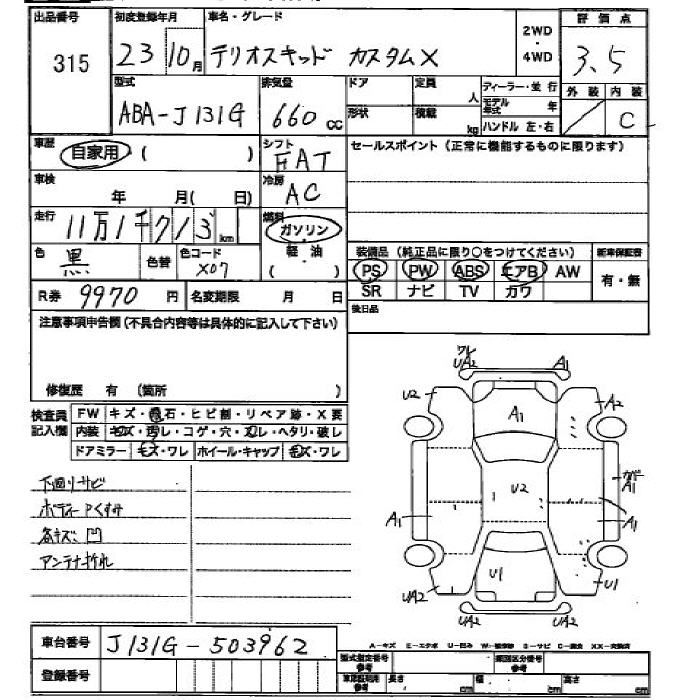 出品番号 初度登録年月 車名・グレード 2WD・4WD 評価点
315 23 10月 テリオスキッド カスタムX 3.5
型式 排気量 ドア 定員 人 ディーラー・並行 外装 内装
ABA-J131G 660cc 形状 積載 kg モデル年式 年 C
ハンドル 左・右
車歴 自家用 ( ) シフト FAT セールスポイント (正常に機能するものに限ります)
車検 年 月( 日) 冷房 AC
走行 11万1千713km 燃料 ガソリン
色 黒 色替 色コード X07 軽油 ( )
装備品 (純正品に限り○をつけてください) 新車保証書
PS PW ABS エアB AW 有・無
SR ナビ TV カワ
R券 9970円 名変期限 月 日 後日品
注意事項申告欄 (不具合内容等は具体的に記入して下さい)
修復歴 有 (箇所 )
検査員記入欄 FW キズ・飛石・ヒビ割・リペア跡・X要
内装 キズ・汚レ・コゲ・穴・スレ・ヘタリ・破レ
ドアミラー キズ・ワレ ホイール・キャップ キズ・ワレ
下廻りサビ
ボディーPくすみ
各キズ、凹
アンテナ折れ
ワレ
UA2 A1
U2 A1 A2
U2 A1
A1 A1
U1
UA2 U1
UA2 UA2
車台番号 J131G-503962
A-キズ E-エクボ U-凹み
登録番号 型式指定番号 参考 類別区分番号 参考
長さ cm 幅 cm 高さ cm